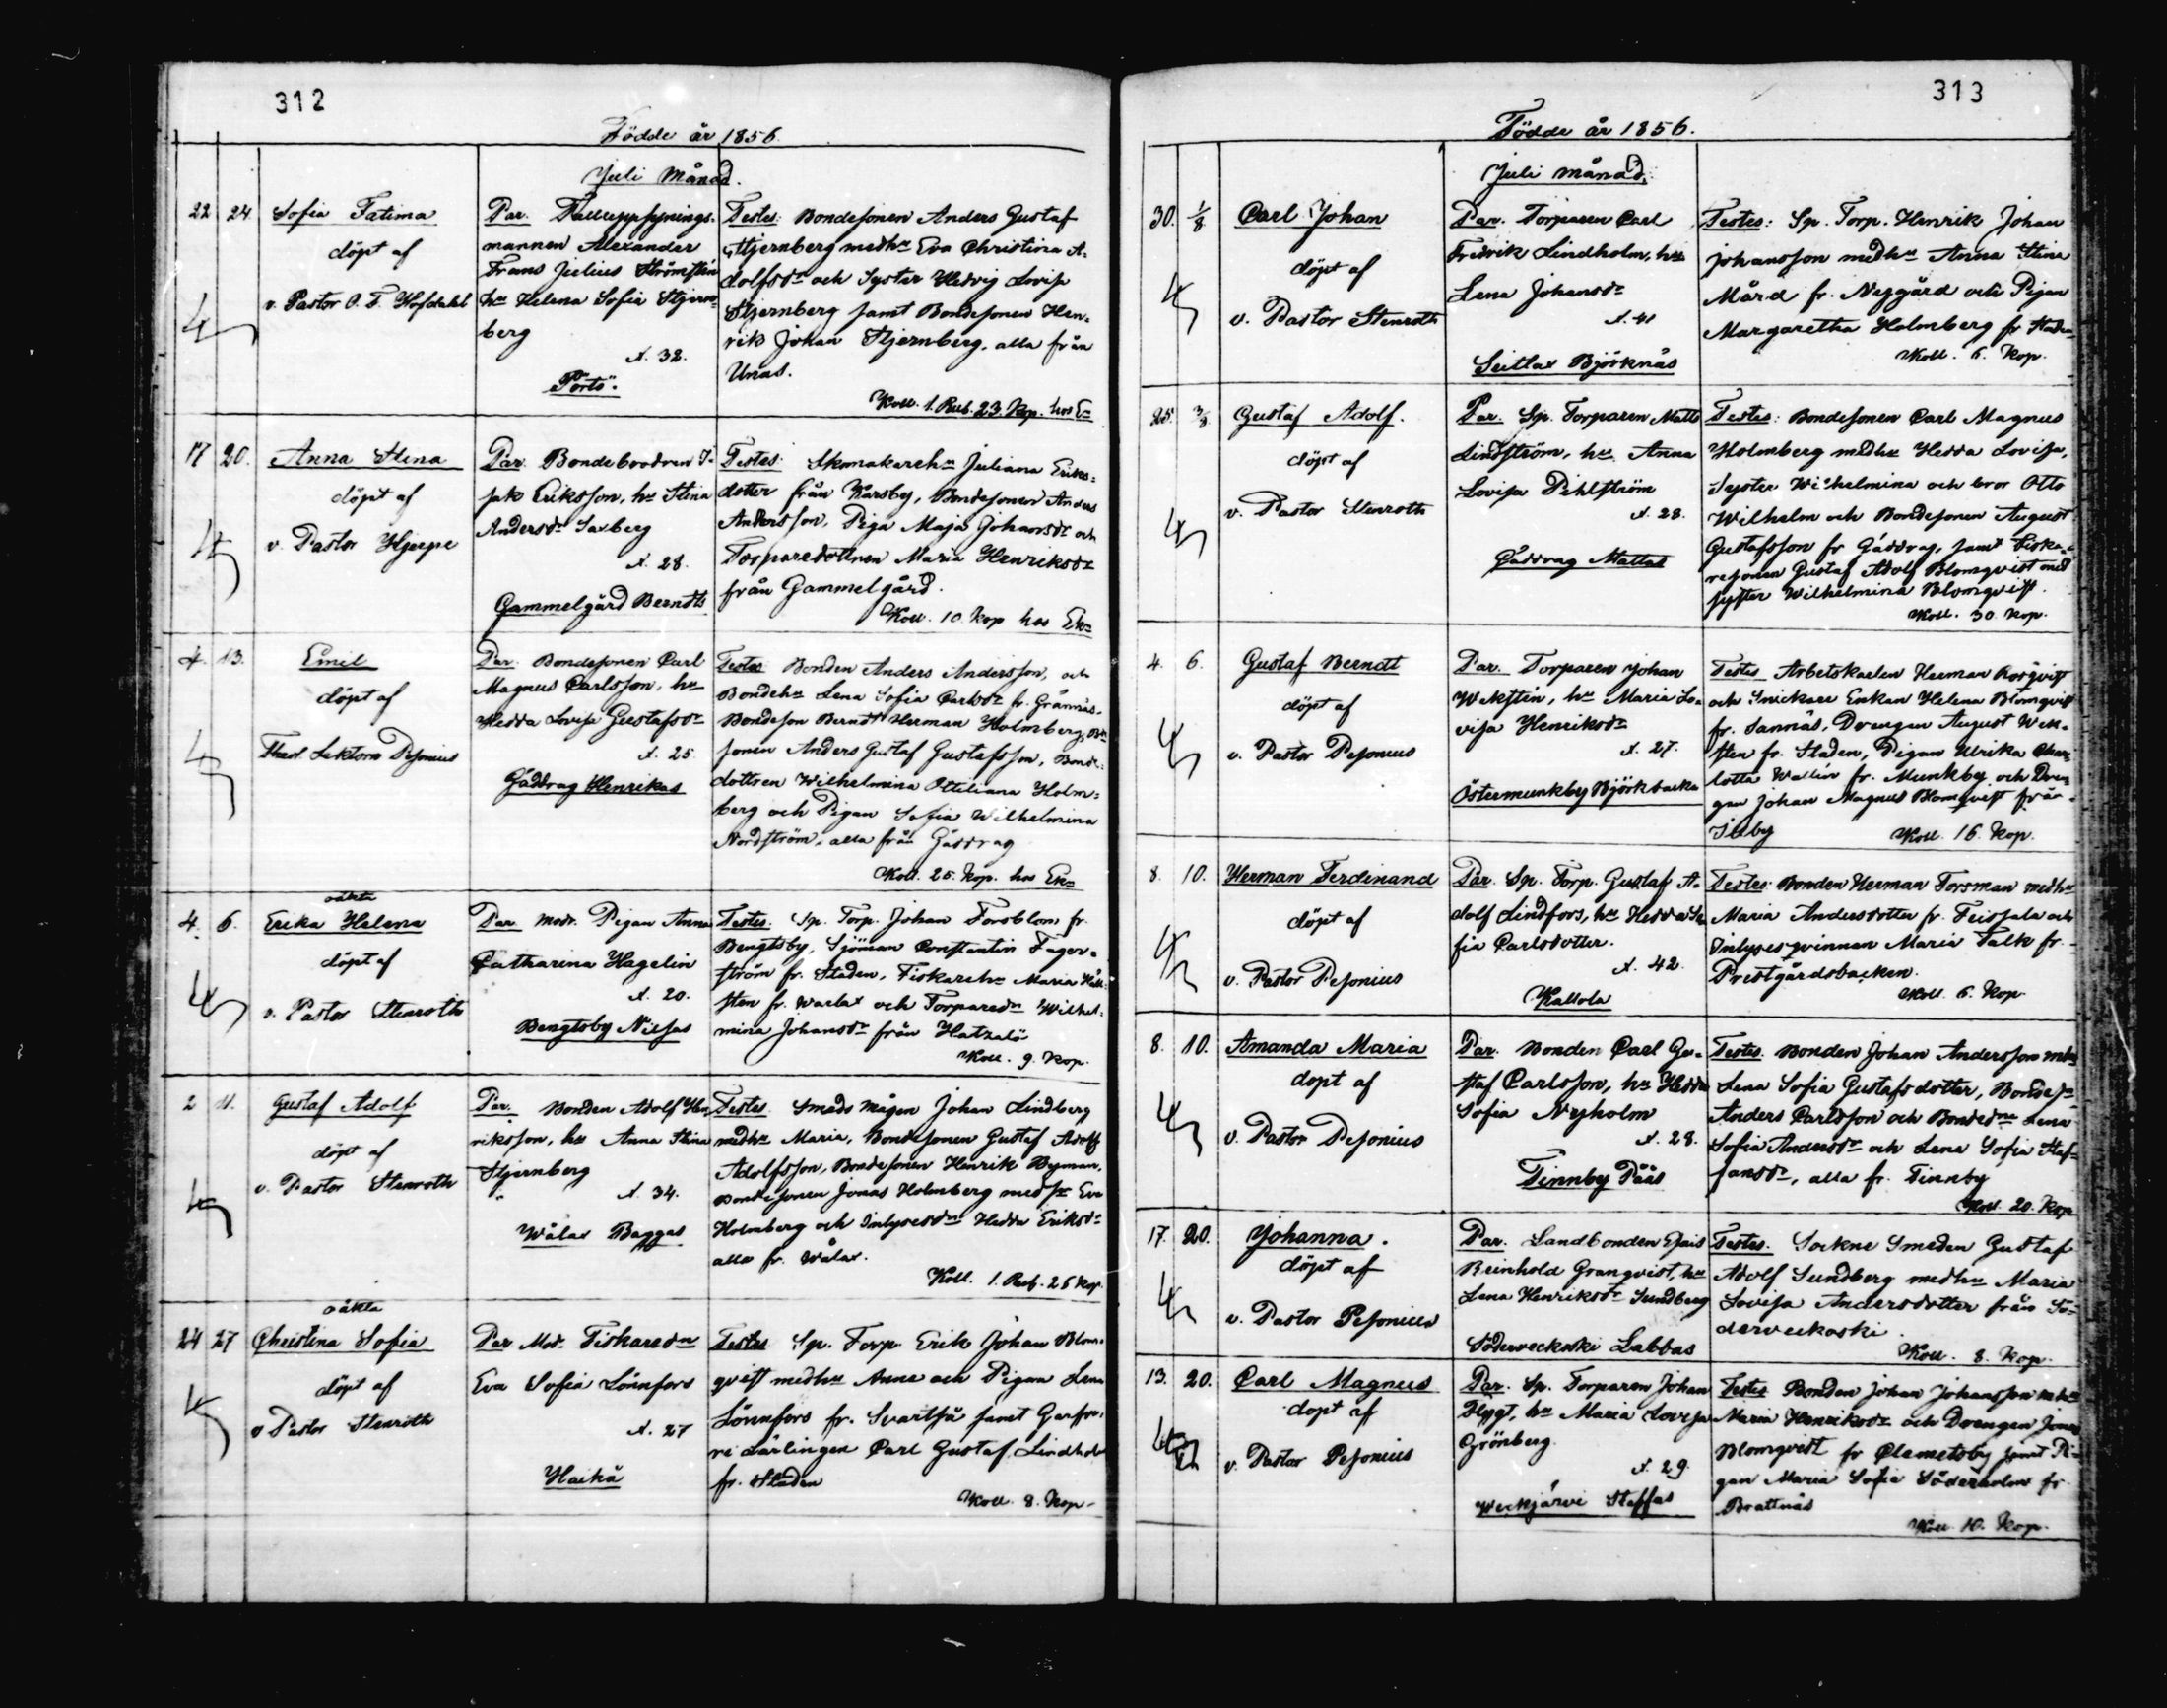 312
Födde år 1856.
Juli Månad.
22 24. Sofia Fatima
döpt af
v. Pastor O. F. Hofdahl
Par.
mannen Alexander
Frans Julius Strömsten
hu Helena Sofia Stjern-
berg
A. 32.
"Torts".
Testes: Bondesonen Anders Gustaf
Stjernberg medhu Eva Christina A-
dolfsdr och Syster Hedvig Lovisa
Stjernberg samt Bondesonen Hen-
rik Johan Stjernberg, alla från
Unas.
Koll. 1. Rub. 23. Kop. hos En
17 20. Anna Stina
döpt af
v. Pastor Hjerpe
Par. Bondebrodren I-
sak Eriksson, hu Stina
Andersdr Saxberg
A. 28.
Gammelgård Berndts
Testes: Skomakarehu Juliana Eriks-
dotter från Karsby, Bondesonen Anders
Andersson, Piga Maja Johansdr och
Torparedottren Maria Henriksdr
från Gammelgård.
Koll. 10. Kop hos Ekn
4. 13. Emil
döpt af
Pesonius
Par. Bondesonen Carl
Magnus Carlsson, hu
Hedda Lovisa Gustafsdr
A. 25
Gäddrag Henrikas
Testes Bonden Anders Andersson, och
Bondehu Lena Sofia Carlsdr fr. Grännäs,
Bondeson Berndt Herman Holmberg, Bde
sonen Anders Gustaf Gustafsson, Bonde-
dottren Wilhelmina Ottiliana Holm-
berg och Pigan Sofia Wilhelmina
Nordström, alla från Gäddrag
Koll. 25. Kop. hos Ekn
oäkta
4. 6. Erika Helena
döpt af
v. Pastor Stenroth
Par Modr. Pigan Anna
Catharina Hagelin
A. 20.
Bengtsby Nissas
Testes. Sp. Torp. Johan Forsblom fr.
Bengtsby, Sjöman Constantin Fager-
ström fr. Staden, Fiskarehu Maria
sten fr. Warlax och Torparedn Wilhel-
mina Johansdr från Hatxalö
Koll. 9. Kop.
2 11. Gustaf Adolf
döpt af
v. Pastor Stenroth
Par. Bonden Adolf Hen-
riksson, hu Anna Stina
Stjernberg
A. 34.
Wålax Baggas
Testes. Smeds mågen Johan Lindberg
medhu Maria, Bondesonen Gustaf Adolf
Adolfsson, Bondesonen Henrik Byman,
Bondesonen Jonas Holmberg med sr Eva
Holmberg och Inhysesdn Hedda Eriksdr
alla fr. Wålax.
Koll. 1. Rub. 26 Kop.
oäkta
24 27 Christina Sofia
döpt af
v Pastor Stenroth
Par Mod. Fiskaredn
Eva Sofia Lönnfors
A. 27
Haikå
Testes Sp. Torp Erik Johan Blom-
qvist medhu Anna och Pigan Lena
Lönnfors fr. Svartså samt Garfve-
ri Lärlingen Carl Gustaf Lindholm
fr. Staden
Koll. 8. Kop.
313
Födde år 1856.
Juli månad.
30. 1/8 Carl Johan
döpt af
v. Pastor Stenroth
Par. Torparen Carl
Fredrik Lindholm, hu
Lena Johansdr
A. 41
Seitlax Björknäs
Testes: Sp. Torp. Henrik Johan
Johansson medhu Anna Stina
Mård fr. Nygård och Pigan
Margaretha Holmberg fr Staden
Koll. 6. Kop.
25. 3/8 Gustaf Adolf.
döpt af
v. Pastor Stenroth
Par. Sp. Torparen Matts
Lindström, hu Anna
Lovisa Pihlström
A. 28.
Gäddrag Mattas
Testes: Bondesonen Carl Magnus
Holmberg medhu Hedda Lovisa,
Syster Wilhelmina och bror Otto
Wilhelm och Bondesonen August
Gustafsson fr Gäddrag, samt Fiska-
resonen Gustaf Adolf Blomqvist med
syster Wilhelmina Blomqvist.
Koll. 30. Kop.
4. 6. Gustaf Berndt
döpt af
v. Pastor Pesonius
Par. Torparen Johan
Wekstén, hu Maria Lo-
visa Henriksdr
A. 27.
Östermunkby Björkbacka
Testes Arbetskarlen Herman Rosqvist
och Snickare Enkan Helena Blomqvist
fr. Sannäs, Drengen August Wek-
sten fr. Staden, Pigan Ulrika Char-
lotta Wallin fr. Munkby och Dren-
gen Johan Magnus Blomqvist från
Illby Koll. 16. Kop.
8. 10. Herman Ferdinand
döpt af
v. Pastor Pesonius
Par. Sp. Torp. Gustaf A-
dolf Lindfors, hu Hedda So-
fia Carlsdotter.
A. 42.
Kallola
Testes: Bonden Herman Forsman medhu
Maria Andersdotter fr. Teissala och
Inhysesqvinnan Maria Falk fr.
Prestgårdsbacken.
Koll. 6. Kop.
8. 10. Amanda Maria
döpt af
v. Pastor Pesonius
Par. Bonden Carl Gu-
staf Carlsson, hu Hedda
Sofia Nyholm
A. 28.
Tinnby Pååls
Testes. Bonden Johan Andersson mhu
Lena Sofia Gustafsdotter, Bondesn
Anders Carlsson och Bondedna Lena
Sofia Andersdr och Lena Sofia Staf-
fansdr, alla fr. Tinnby
Koll. 20. Kop
17. 20. Johanna.
döpt af
v. Pastor Pesonius
Par. Landbonden Esais
Reinhold Granqvist, hu
Lena Henriksdr Sundberg
Söderveckoski Labbas
Testes. Sockne Smeden Gustaf
Adolf Sundberg medhu Maria
Lovisa Andersdotter från Sö-
derveckoski.
Koll. 8. Kop.
13. 20. Carl Magnus
döpt af
v. Pastor Pesonius
Par. Sp. Torparen Johan
Flygt, hu Maria Lovisa
Grönberg.
A. 29.
Weckjärvi Staffas
Testes Bonden Johan Johansson mhu
Maria Henriksdr och Drengen Jonas
Blomqvist fr Clemetsby samt Pi-
gan Maria Sofia Söderholm fr
Brattnäs
Koll. 10. Kop.